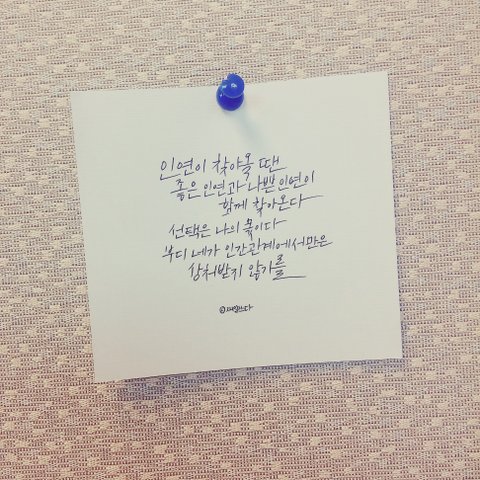 인연이 찾아올 땐
좋은 인연과 나쁜 인연이
함께 찾아온다
선택은 나의 몫이다
부디 네가 인간관계에서만은
상처받지 않기를